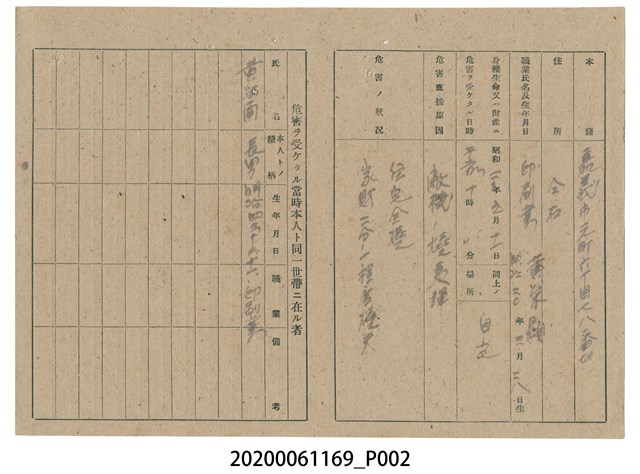 本籍 嘉義市元町六丁目七八番地
住所 仝右
職業氏名及生年月日 印刷業 黄栄 年 月 日生
身體生命又ハ財產ニ危害ヲ受ケタル日時 昭和二〇年 月十一日 午前十時 分 同上ノ場所 自宅
危害直接原因 敵機 爆弾
危害ノ狀況 住宅全燒
家財二分ノ一程度燒失
危害ヲ受ケタル當時本人ト同一世帶ニ在ル者
氏名 本人トノ續柄 生年月日 職業 備考
黄 長男 明治四 印刷業
20200061169_P002